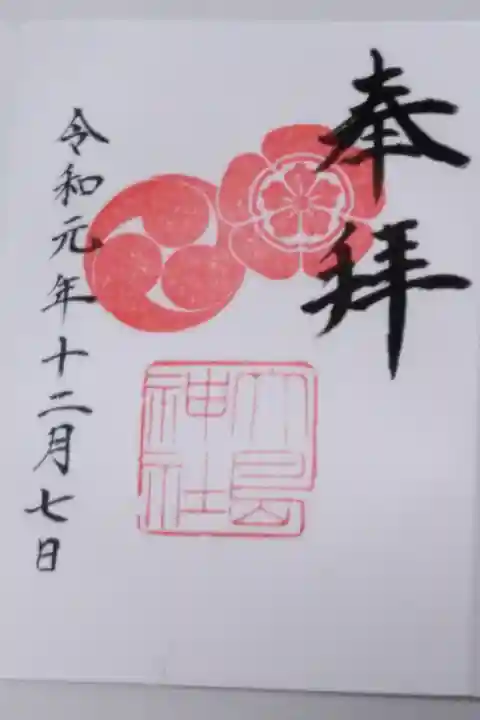 奉拝
竹島
神社
令和元年十二月七日